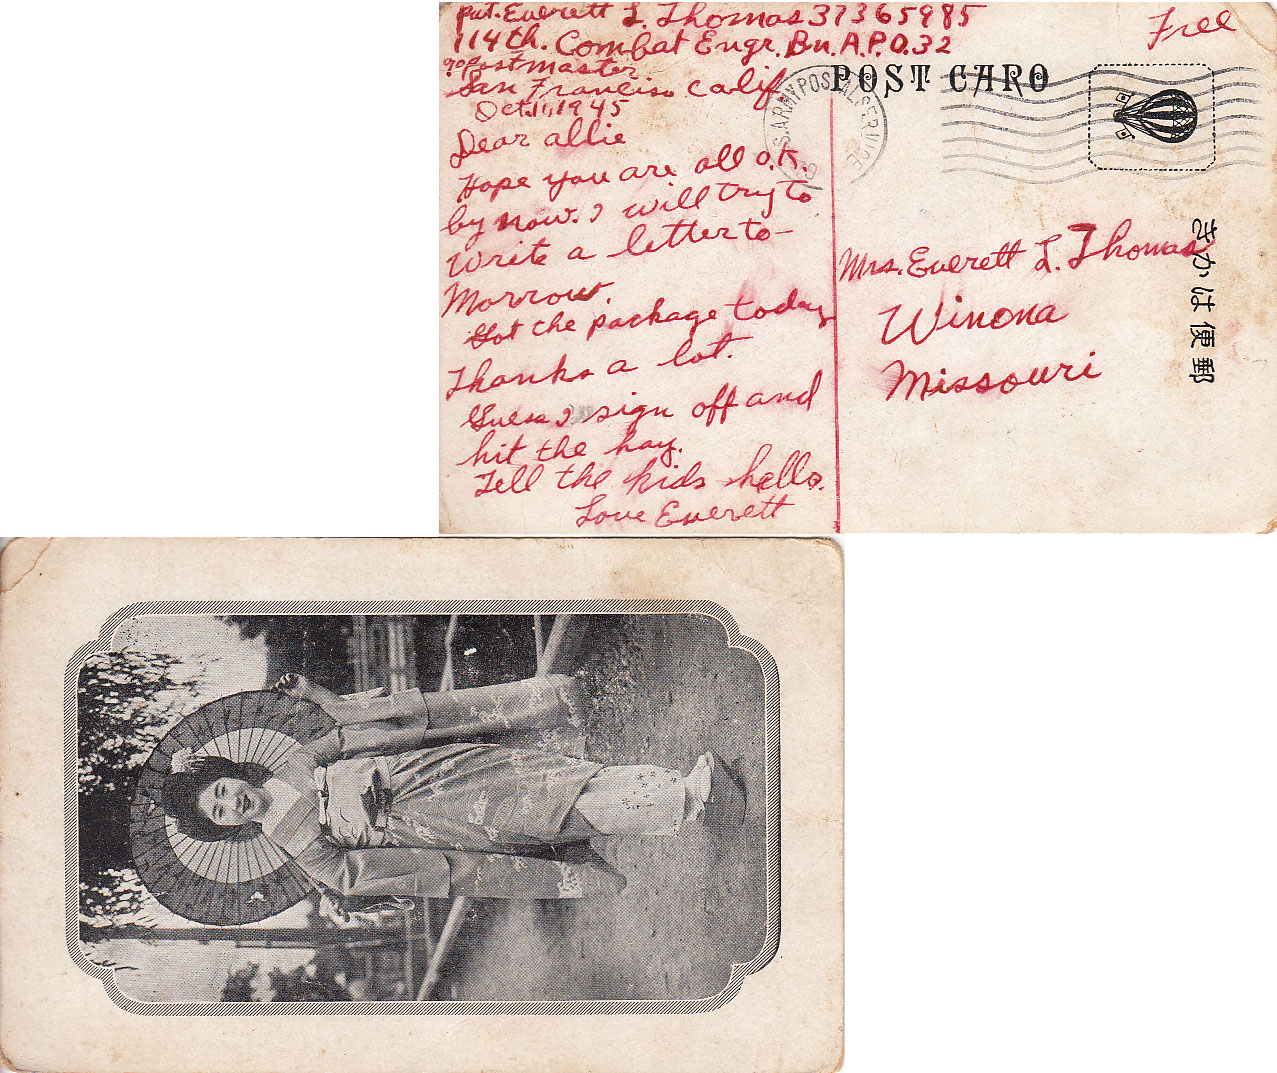 Pvt. Everett L. Thomas 37365985
114th. Combat Engr. Bn. A.P.O. 32
℅ Postmaster
San Francisco Calif
Oct. 11, 1945
Dear Allie
Hope you are all O.K.
by now. I will try to
write a letter to-
Morrow.
Got the package today
Thanks a lot.
Guess I sign off and
hit the hay.
Tell the kids hello.
Love Everett
Free
POST CARD
U.S. ARMY POSTAL SERVICE
Mrs. Everett L. Thomas
Winona
Missouri
きかは便郵